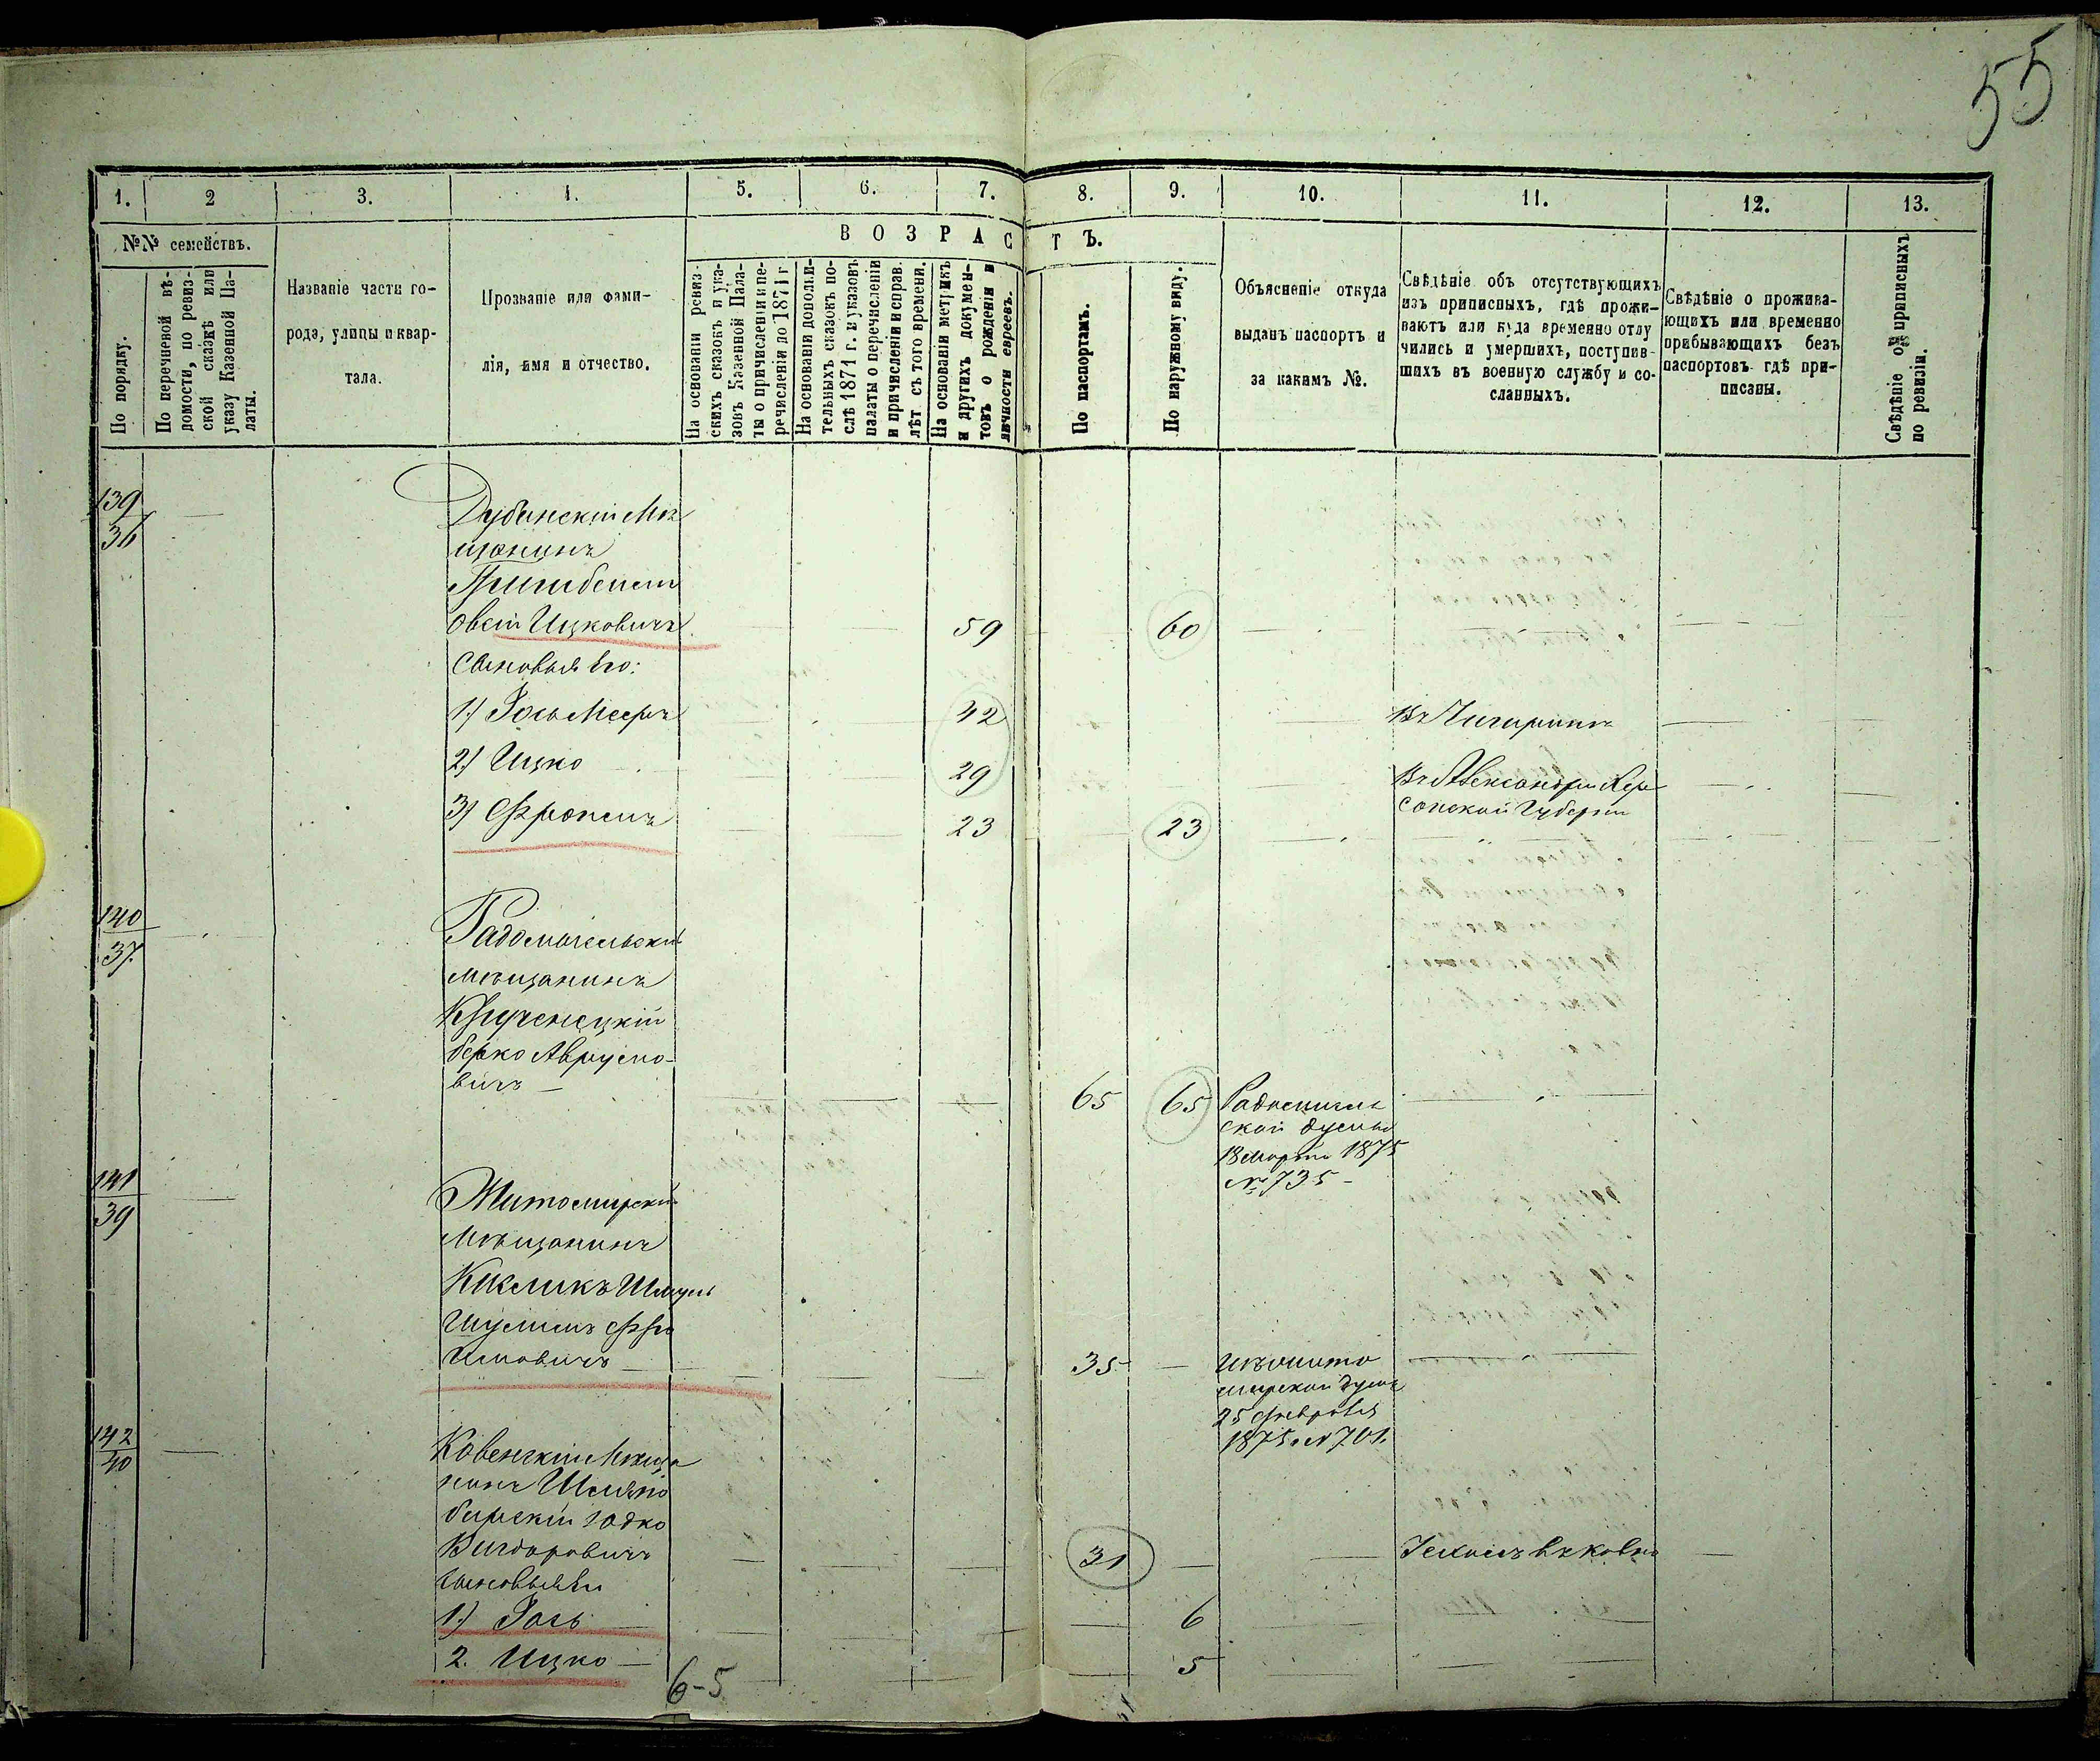 55
1. 2 3. 4. 5. 6. 7. 8. 9. 10. 11. 12. 13.
№№ семействъ.
По порядку.
По перечневой вѣ-
домости, по ревиз-
ской сказкѣ или
указу Казенной Па-
латы.
Названіе части го-
рода, улицы и квар-
тала.
Прозваніе или фами-
лія, имя и отчество.
ВОЗРАСТЪ.
На основаніи ревиз-
скихъ сказокъ и ука-
зовъ Казенной Пала-
ты о причисленіи и пе-
речисленіи до 1871 г
На основаніи дополни-
тельныхъ сказокъ по-
слѣ 1871 г. и указовъ
палаты о перечисленіи
и причисленіи и исправ.
лѣт съ того времени.
На основаніи метрикъ
и другихъ докумен-
товъ о рожденіи и
личности евреевъ.
По паспортамъ.
По наружному виду.
Объясненіе откуда
выданъ паспортъ и
за какимъ №.
Свѣдѣніе объ отсутствующихъ
изъ приписныхъ, гдѣ прожи-
ваютъ или куда временно отлу
чились и умершихъ, поступив-
шихъ въ военную службу и со-
сланныхъ.
Свѣдѣніе о прожива-
ющихъ или временно
прибывающихъ безъ
паспортовъ гдѣ при-
писаны.
Свѣдѣніе о приписныхъ
по ревизіи.
139
36
Дубенскій Мѣ
щанинъ
Овсій Ицковичъ 59 60
Сыновья его:
1) Іось Мееръ 32 Въ Чигиринѣ
2) Ицко 29 Въ Александріи Хер
сонской Губерніи
3) Фроимъ 23 23
140
37
Радомысльскій
мѣщанинъ
Крученецкій
Берко Аврумо-
вичъ 65 65 Радомысль
ской думы
13 Марта 1875
№ 735
141
39
Житомирскій
Мѣщанинъ
Кисликъ Шмуль
Шулимъ Фро
имовичъ 35 Изъ Жито
мирской думы
25 Февраля
1875 № 701.
142
40
Ковенскій Мѣща
нинъ
Юдко
Вигдоровичъ 31 въ Ковно
сыновья его
1) Іось 6
2. Ицко 5
6-5